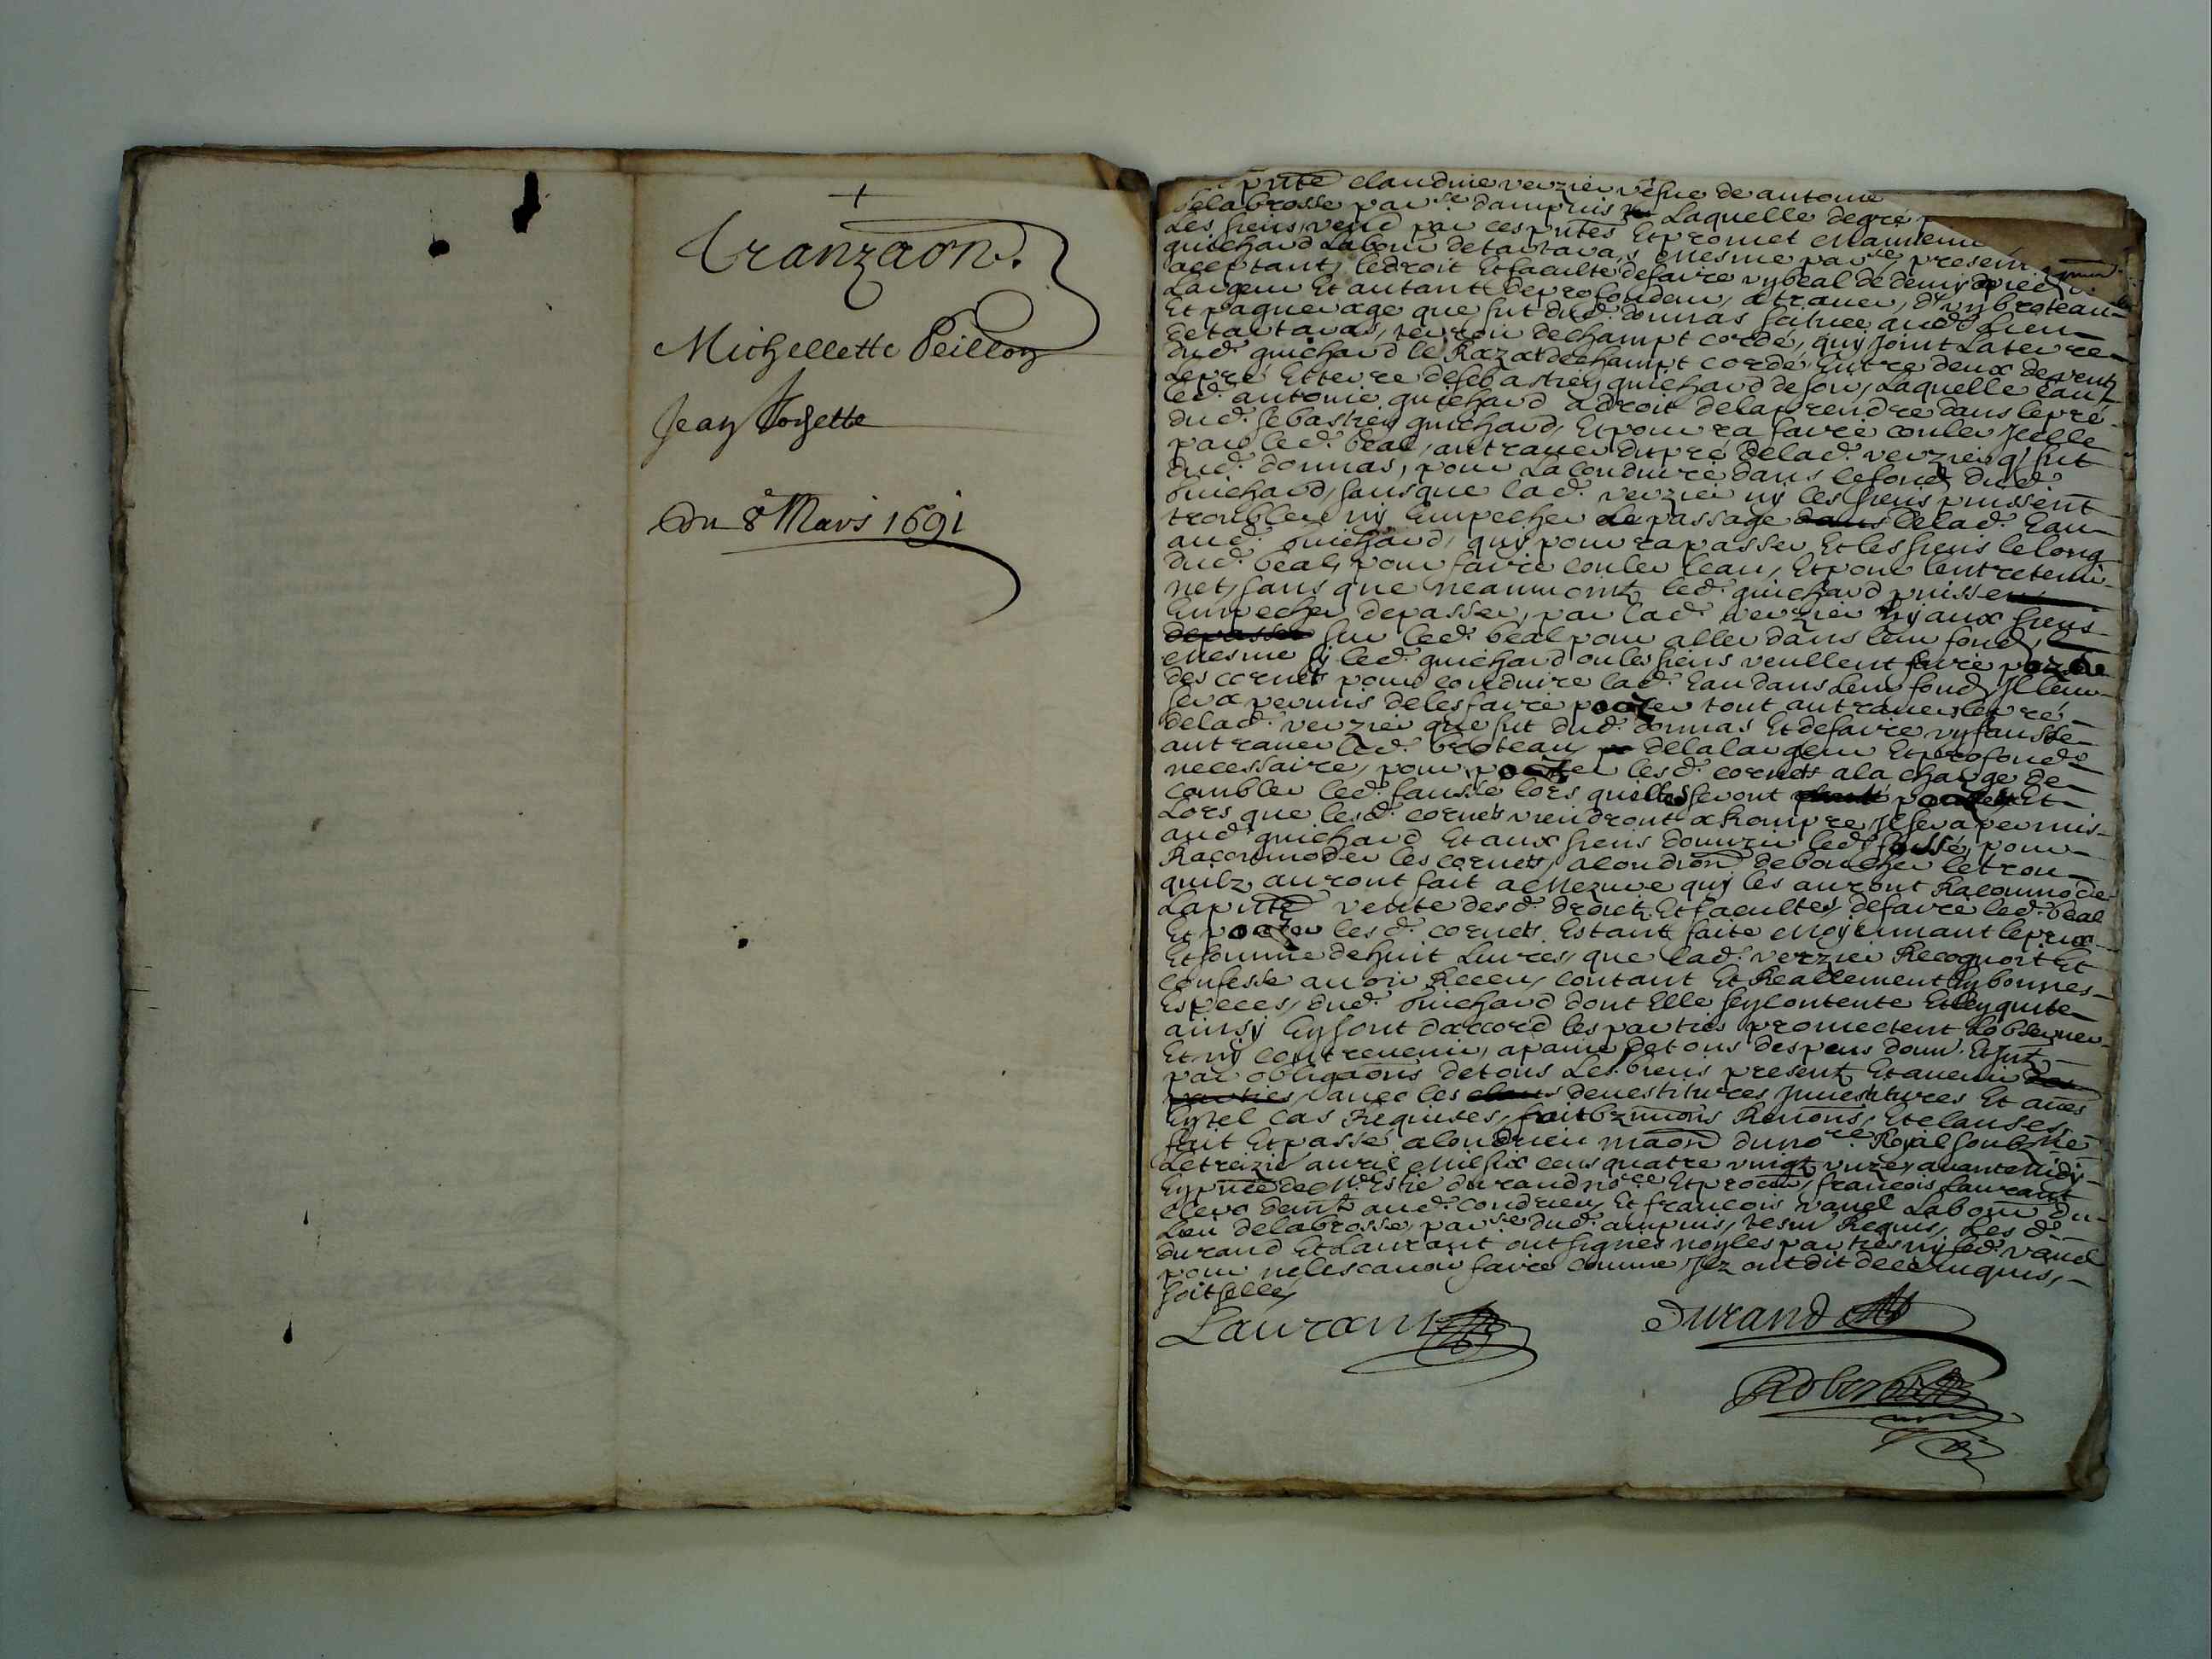 +
Tranzaon.
Michellette Peillon
Jean Forgette
Du 8e Mars 1691
pnte claudine verzier vefue de antoine
delabrosse parsse dampuis Laquelle degré
Les siens, vend par ces pntes Et promet maintenir
guichard Labour de tartaras, mesme parsse present
aceptant, le droit Et faculte de faire vn beal de demy pied
Largeur Et autant de profondeur, a trauer, d'vn broteau
Et paquerage que fut dud. donnas scituee aud. Lieu
de tartaras, terroir de champt cordé, quy joint La terre
dud. guichard le Razat de champt cordé Entre deux de vent
Le pré Et terre de sebastien guichard de soir, Laquelle eau
led. antoine guichard a droit de la prendre dans le pré
dud. sebastien guichard, Et pourra faire couler Icelle
par led. beal, au trauer du pré de lad. verzier q fut
dud. donnas, pour La conduire dans le fond dud.
Guichard, sans que lad. verzier ny les siens puissent
troubler ny Empecher Le passage de lad. Eau
aud. Guichard, quy pourra passer Et les siens le long
dud. beal, pour faire couler leau, Et pour lentretenir
net, sans que neanmointz led. guichard puisse
Empecher de passer, par lad. verzier ny aux siens
sur led. beal pour aller dans leur fond,
mesme sy led. guichard ou les siens veullent faire pozer
des cornets pour conduire lad. Eau dans Leur fond, Il leur
sera permis de les faire pozer tout au trauer le pré
de lad. verzier que fut dud. donnas Et de faire vn fausse
au trauer led. broteau de la largeur Et profondr
necessaire, pour pozer lesd. cornets a la charge de
Combler led. fausse lors quelles seront pozer Et
Lors que lesd. cornets viendront a Rompre, Il sera permis
aud. guichard Et aux siens douurir led. fossé, pour
Racommoder les cornets, a condion de boucher le trou
quilz auront fait a mezure quy les auront Racommodé
La pnte vente desd. droict Et facultes, de faire led. beal
Et pozer lesd. cornets Estant faite moyennant le prix
Et somme de huit Liures, que lad. verzier Recognoit Et
confesse auoir Receu, contant Et Reallement En bonnes
Especes, dud. Guichard dont Elle sen contente Et len quite
ainsy En sont daccord les parties promectent Lobseruer
Et ny contreuenir, a paine de tous despens dom. Et Intz
par obligaons de tous Les biens present Et auenir
auec les deuestitures Inuestitures Et aues
En tel cas Requises, soubzmons Renons, Et clauses
fait Et passé a Condrieu maon du nore Royal soubzné
Le treizie auril mil six cens quatre vingt vnze, auant midy
En pnce de Me Estie durand nore Et procur, francois Laurant
clerc demt aud. Condrieu, Et francois vanel Labour du
Lieu de labrosse, parsse dud. ampuis, tesm Requis, Les d.
durand Et Laurant ont signés non les parties ny led. vanel
pour ne le scauoir faire comme Ilz ont dit de ce enquis,
soit sellé
Laurant Durand
Robert